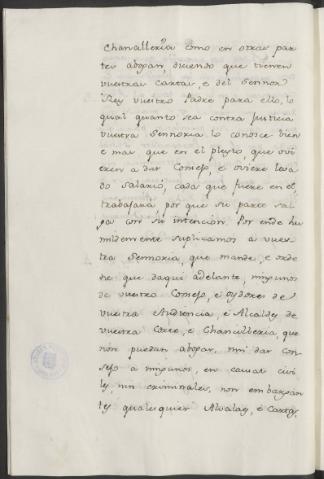 Chancilleria como en otras par
tes abogan, diciendo que tienen
vuestras Cartas, e del Sennor
Rey vuestro Padre para ello, lo
qual quanto sea contra Justicia
vuestra Sennoria lo conosce bien
e mas que en el pleyto, que ovi
eren a dar Consejo, e oviere leva
do salario, cada que fuere en el,
trabajará por que su parte sal
ga con su intención. Por ende hu
milldemente suplicamos a vues
tra Sennoria, que mande, e orde
ne que daqui adelante, ningunos
de vuestro Consejo, e oydores de
vuestra Audiencia, e Alcaldes de
vuestra Corte, e Chancilleria, que
non puedan abogar, nin dar con
sejo a ningunos, en causas civi
les, nin criminales, non embargan
tes qualesquier Alvalaes, e Cartas,